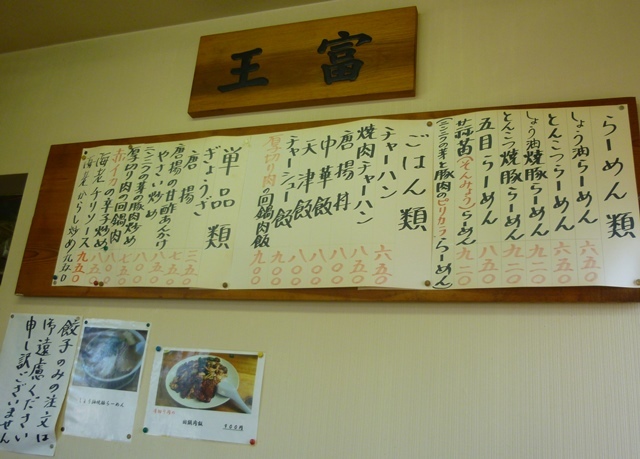 富王
らーめん類
しょう油らーめん 六五〇
とんこつらーめん 六五〇
しょう油焼豚らーめん 九二〇
とんこつ焼豚らーめん 九二〇
五目らーめん 八五〇
蒜苗(さんみょう)らーめん 九二〇
(ニンニクの芽と豚肉のピリカラらーめん)
ごはん類
チャーハン 六五〇
焼肉チャーハン 八五〇
唐揚丼 八〇〇
中華飯 八〇〇
天津飯 八〇〇
チャーシュー飯 九〇〇
厚切り肉の回鍋肉飯 九〇〇
単品類
ぎょうざ 三五〇
唐揚 七五〇
唐揚の甘酢あんかけ 八〇〇
やさい炒め
ニンニクの芽の豚肉炒め
厚切り肉の回鍋肉
赤イカの辛子炒め
海老チリソース 九五〇
海老からし炒め 九五〇
餃子のみの注文は
御遠慮ください
申し訳ございません
回鍋肉飯